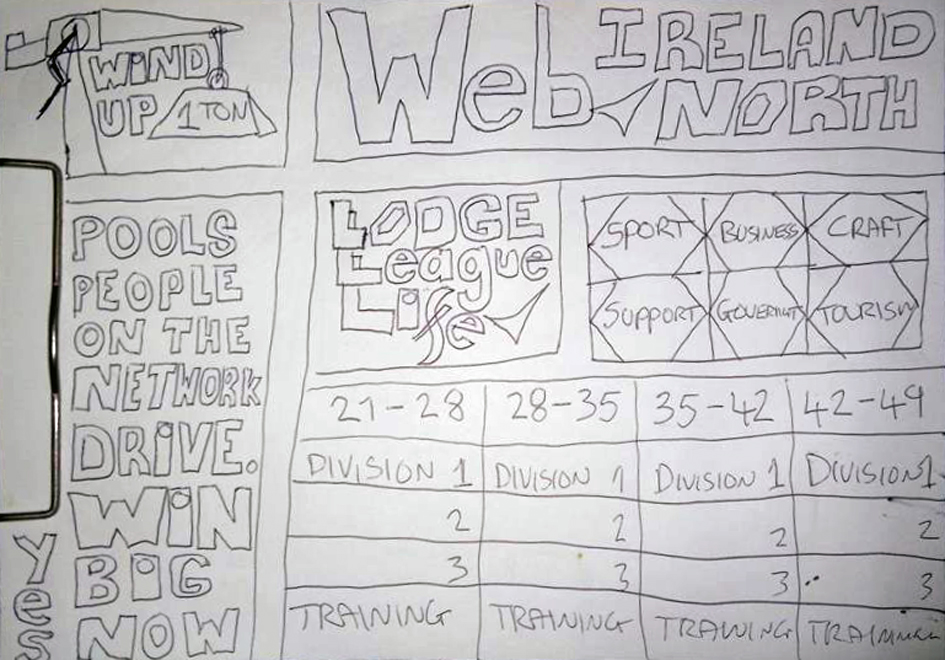 WiND
UP 1 TON
Web IRELAND
NORTH
POOLS
PEOPLE
ON THE
NETWORK
DRiVE.
WiN
BiG
NOW
Yes
LODGE
League
Life
SPORT BUSINESS CRAFT
SUPPORT TOURISM
21-28 28-35 35-42 42-49
DIVISION 1 DIVISION 1 DIVISION 1 DIVISION 1
2 2 2 2
3 3 3 3
TRAINING TRAINING TRAINING